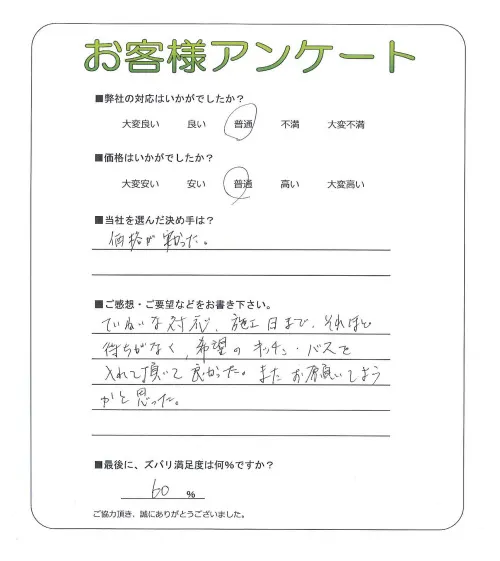 お客様アンケート
■弊社の対応はいかがでしたか？
大変良い 良い 普通 不満 大変不満
■価格はいかがでしたか？
大変安い 安い 普通 高い 大変高い
■当社を選んだ決め手は？
価格が安かった。
■ご感想・ご要望などをお書き下さい。
ていねいな対応、施工日まで、それほど
待ちがなく、希望のキッチン・バスを
入れて頂いて良かった。またお願いしよう
かと思った。
■最後に、ズバリ満足度は何%ですか？
60 %
ご協力頂き、誠にありがとうございました。